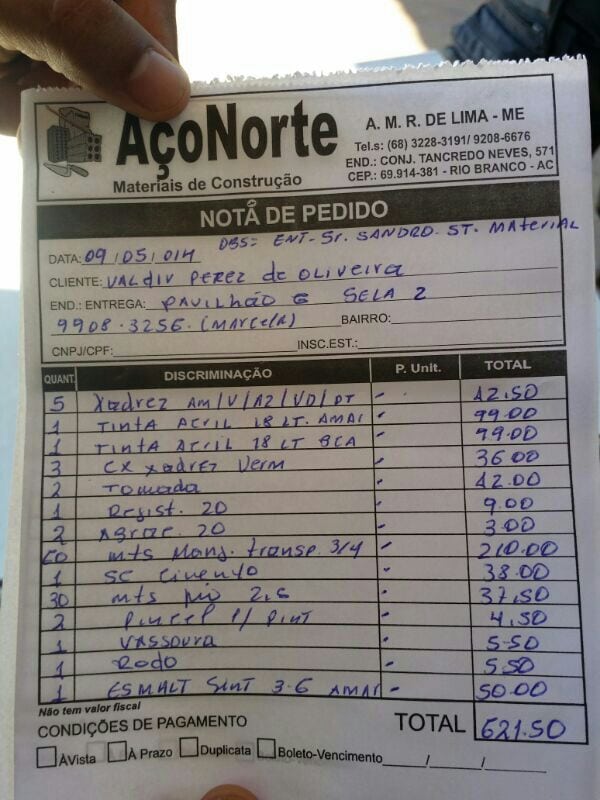 AçoNorte
Materiais de Construção
A. M. R. DE LIMA - ME
Tel.s: (68) 3228-3191/ 9208-6676
END.: CONJ. TANCREDO NEVES, 571
CEP.: 69.914-381 - RIO BRANCO - AC
NOTA DE PEDIDO
OBS= ENT-Sr. SANDRO. ST. MATERIAL
DATA: 09/05/014
CLIENTE: VALDIV PEREZ de OLIVEIRA
END.: ENTREGA: PAVILHÃO G SELA 2
9908-3256. (MARCELA) BAIRRO:
CNPJ/CPF: INSC.EST.:
QUANT. DISCRIMINAÇÃO P. Unit. TOTAL
5 Xadrez AM/V/AZ/VD/PT - 42.50
1 TINTA ACRIL 18 LT. AMAR - 99.00
1 TINTA ACRIL 18 LT BCA - 99.00
3 CX Xadrez Verm - 36.00
2 Tomada - 42.00
1 Regist. 20 - 9.00
2 20 - 3.00
60 mts Mang. transp. 3/4 - 210.00
1 SC Cimento - 38.00
30 mts fio 2,5 - 37,50
2 Pincel p/ Pint - 4,50
1 VASSOURA - 5.50
1 RODO - 5,50
1 ESMALT SINT 3-6 AMAR - 50.00
Não tem valor fiscal
CONDIÇÕES DE PAGAMENTO TOTAL 621.50
ÀVista À Prazo Duplicata Boleto-Vencimento / /